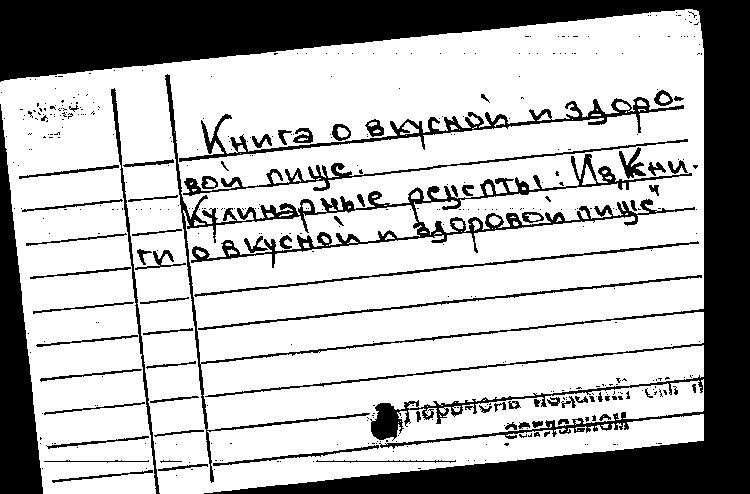 Книга о вкусной и здоро-
вой пище.
Кулинарные рецепты: Из „Кни-
ги о вкусной и здоровой пище".
Перечень изданий см. п
заглавном